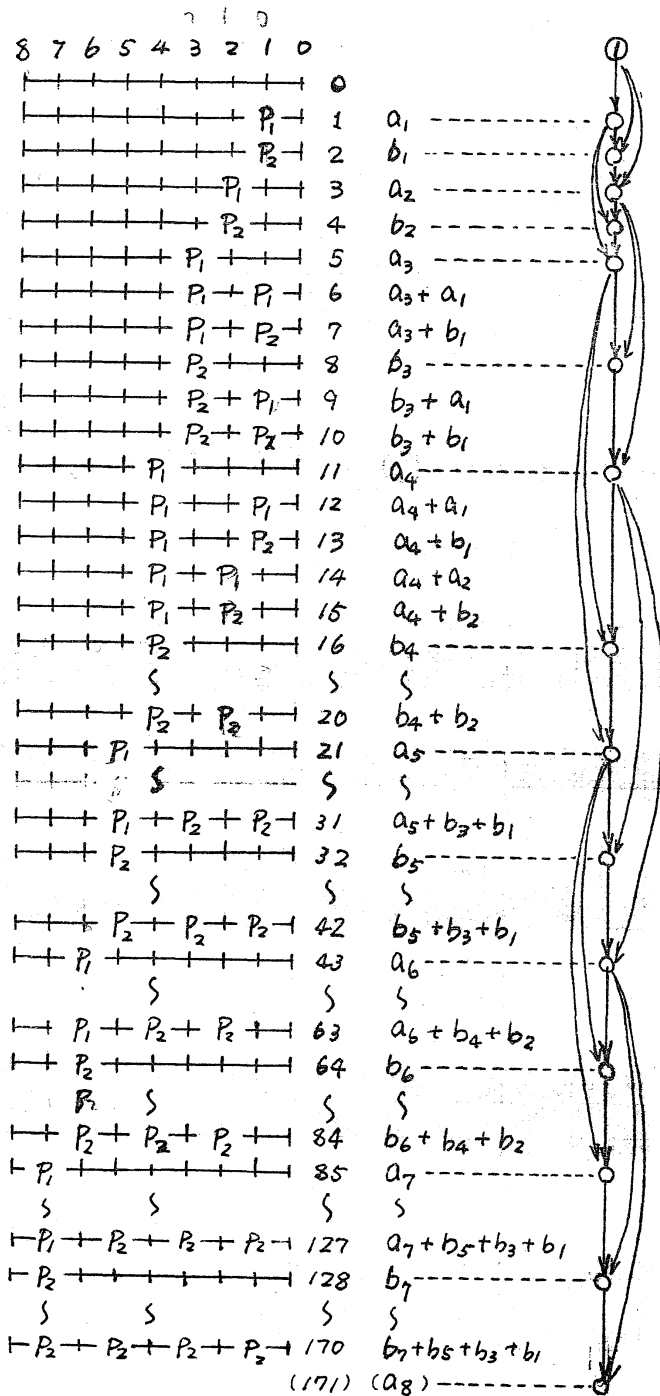 2 1 0
8 7 6 5 4 3 2 1 0
0 0
P₁ 1 a₁
P₂ 2 b₁
P₁ 3 a₂
P₂ 4 b₂
P₁ 5 a₃
P₁ P₁ 6 a₃ + a₁
P₁ P₂ 7 a₃ + b₁
P₂ 8 b₃
P₂ P₁ 9 b₃ + a₁
P₂ P₂ 10 b₃ + b₁
P₁ 11 a₄
P₁ P₁ 12 a₄ + a₁
P₁ P₂ 13 a₄ + b₁
P₁ P₁ 14 a₄ + a₂
P₁ P₂ 15 a₄ + b₂
P₂ 16 b₄
P₂ P₂ 20 b₄ + b₂
P₁ 21 a₅
P₁ P₂ P₂ 31 a₅ + b₃ + b₁
P₂ 32 b₅
P₂ P₂ P₂ 42 b₅ + b₃ + b₁
P₁ 43 a₆
P₁ P₂ P₂ 63 a₆ + b₄ + b₂
P₂ 64 b₆
P₂ P₂ P₂ 84 b₆ + b₄ + b₂
P₁ 85 a₇
P₁ P₂ P₂ P₂ 127 a₇ + b₅ + b₃ + b₁
P₂ 128 b₇
P₂ P₂ P₂ P₂ 170 b₇ + b₅ + b₃ + b₁
(171) (a₈)